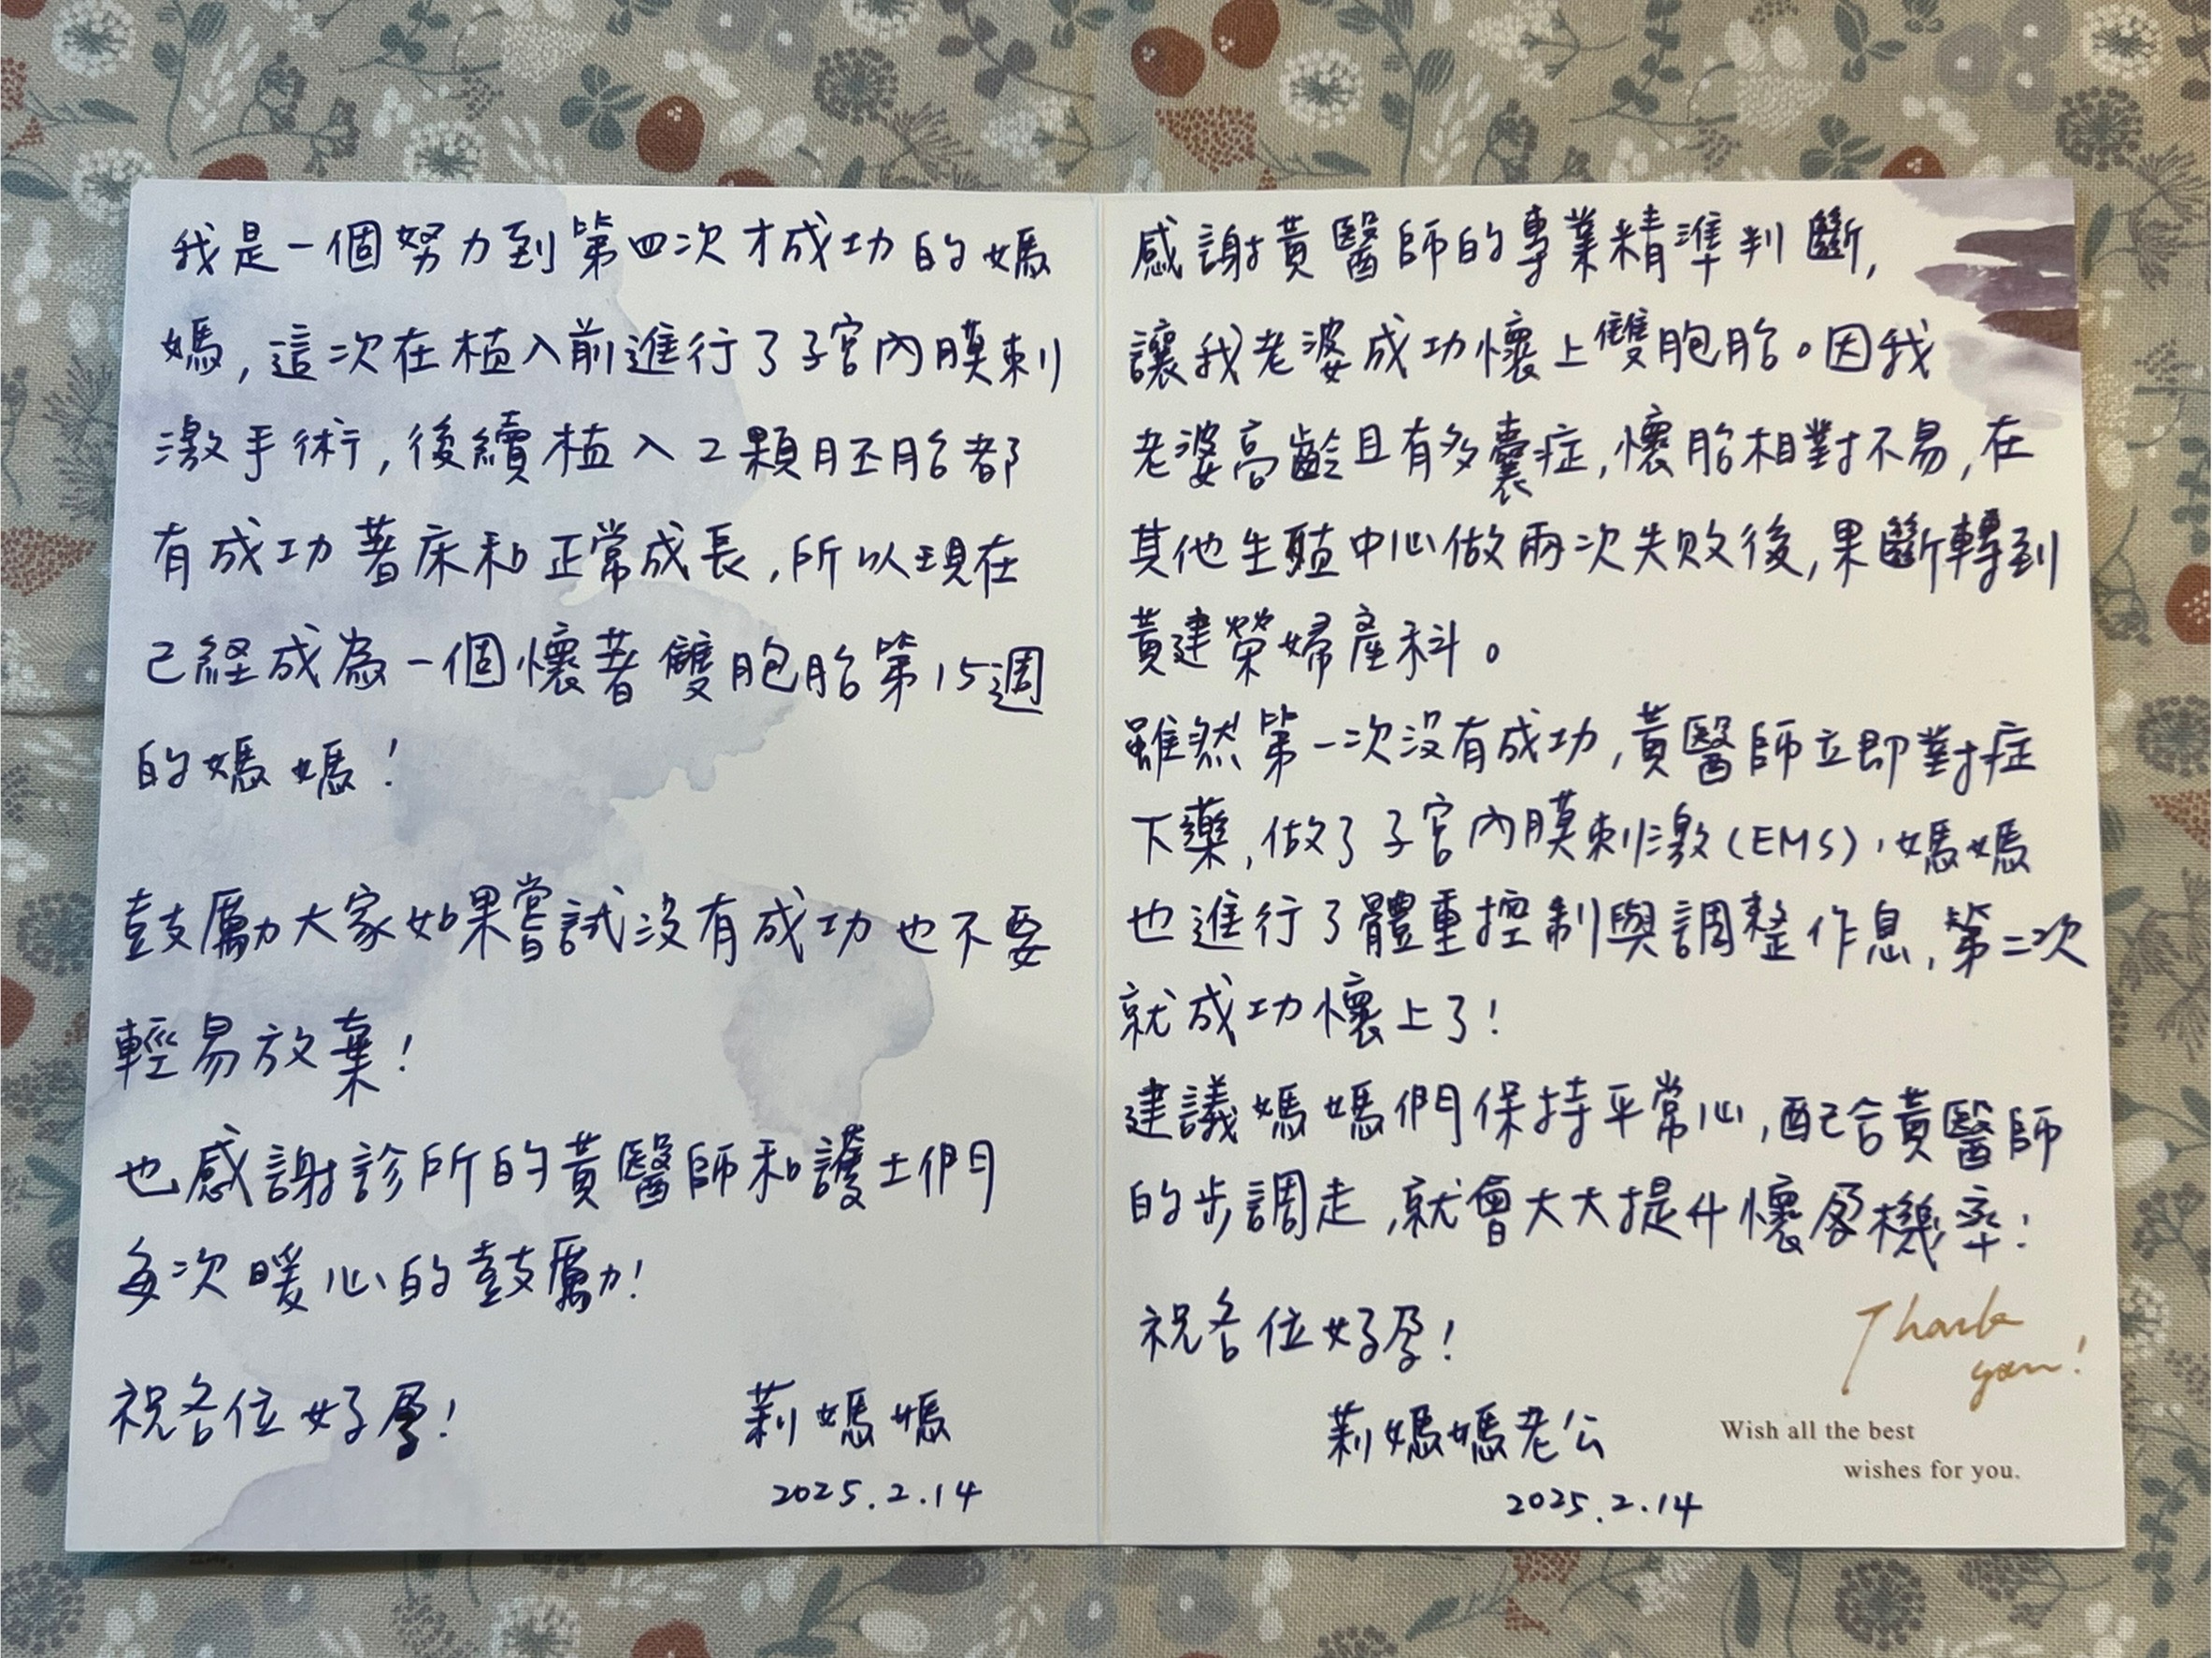 我是一個努力到第四次才成功的媽
媽,這次在植入前進行了子宮內膜刺
激手術,後續植入2顆胚胎都
有成功著床和正常成長,所以現在
已經成為一個懷著雙胞胎第15週
的媽媽!
鼓勵大家如果嘗試沒有成功也不要
輕易放棄!
也感謝診所的黃醫師和護士們
每次暖心的鼓勵!
祝各位好孕!
莉媽媽
2025.2.14
感謝黃醫師的專業精準判斷,
讓我老婆成功懷上雙胞胎。因我
老婆高齡且有多囊症,懷胎相對不易,在
其他生殖中心做兩次失敗後,果斷轉到
黃建榮婦產科。
雖然第一次沒有成功,黃醫師立即對症
下藥,做了子宮內膜刺激(EMS),媽媽
也進行了體重控制與調整作息,第二次
就成功懷上了!
建議媽媽們保持平常心,配合黃醫師
的步調走,就會大大提升懷孕機率!
祝各位好孕!
莉媽媽老公
2025.2.14
Thank
you!
Wish all the best
wishes for you.